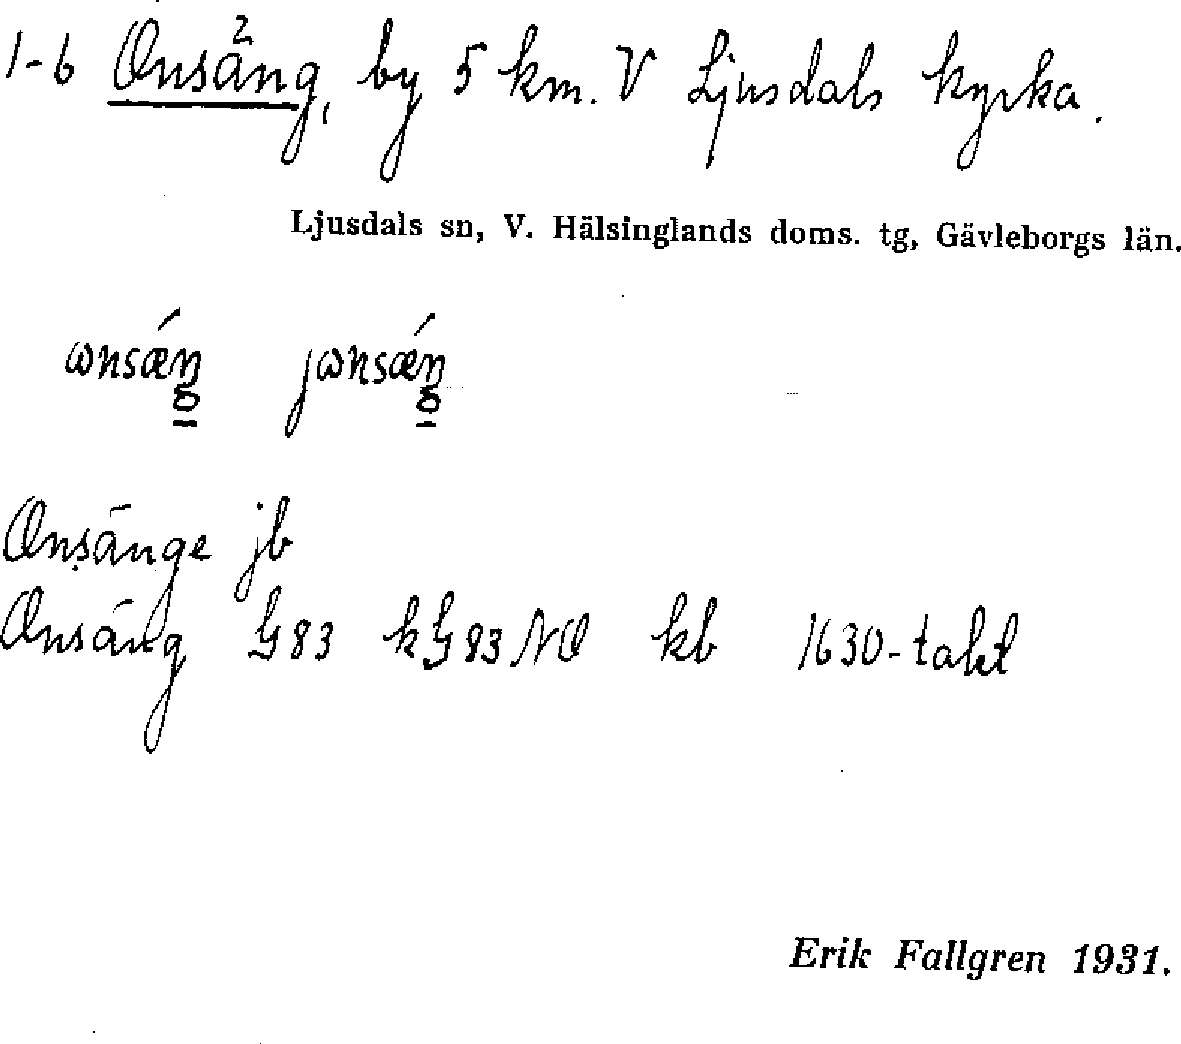 1-6 Onsäng, by 5 km. V Ljusdals kyrka.
Ljusdals sn, V. Hälsinglands doms. tg, Gävleborgs län.
ɷnsǽŋ jɷnsǽŋ
Onsänge jb
Onsäng G83 kG83NO kb 1630-takt
Erik Fallgren 1931.